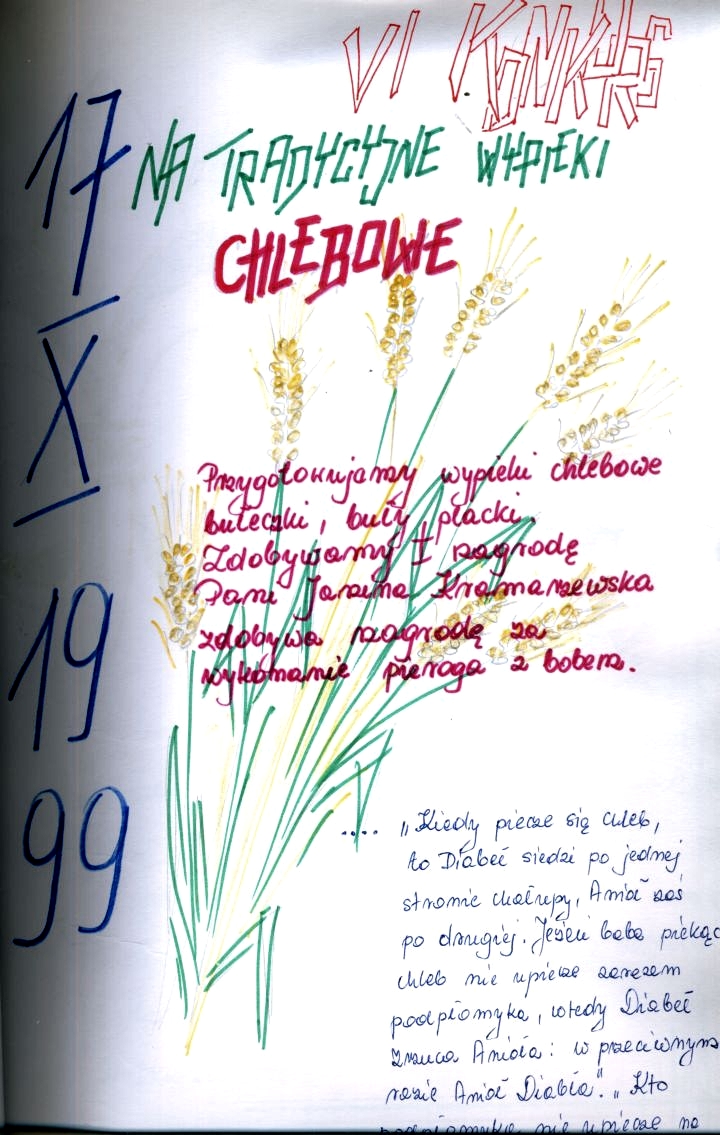 VI KONKURS
NA TRADYCYJNE WYPIEKI
CHLEBOWE
17
X
19
99
Przygotowujemy wypieki chlebowe
bułeczki, buły, placki.
Zdobywamy I nagrodę
Pani Janina Kramarzewska
zdobywa nagrodę za
wykonanie pieroga z bobem.
.... „Kiedy piecze się chleb,
to Diabeł siedzi po jednej
stronie chałupy, Anioł zaś
po drugiej. Jeżeli baba piekąc
chleb nie upiecze zarazem
podpłomyka, wtedy Diabeł
zrzuca Anioła: w przeciwnym
razie Anioł Diabła". „Kto
podpłomyka nie upiecze na